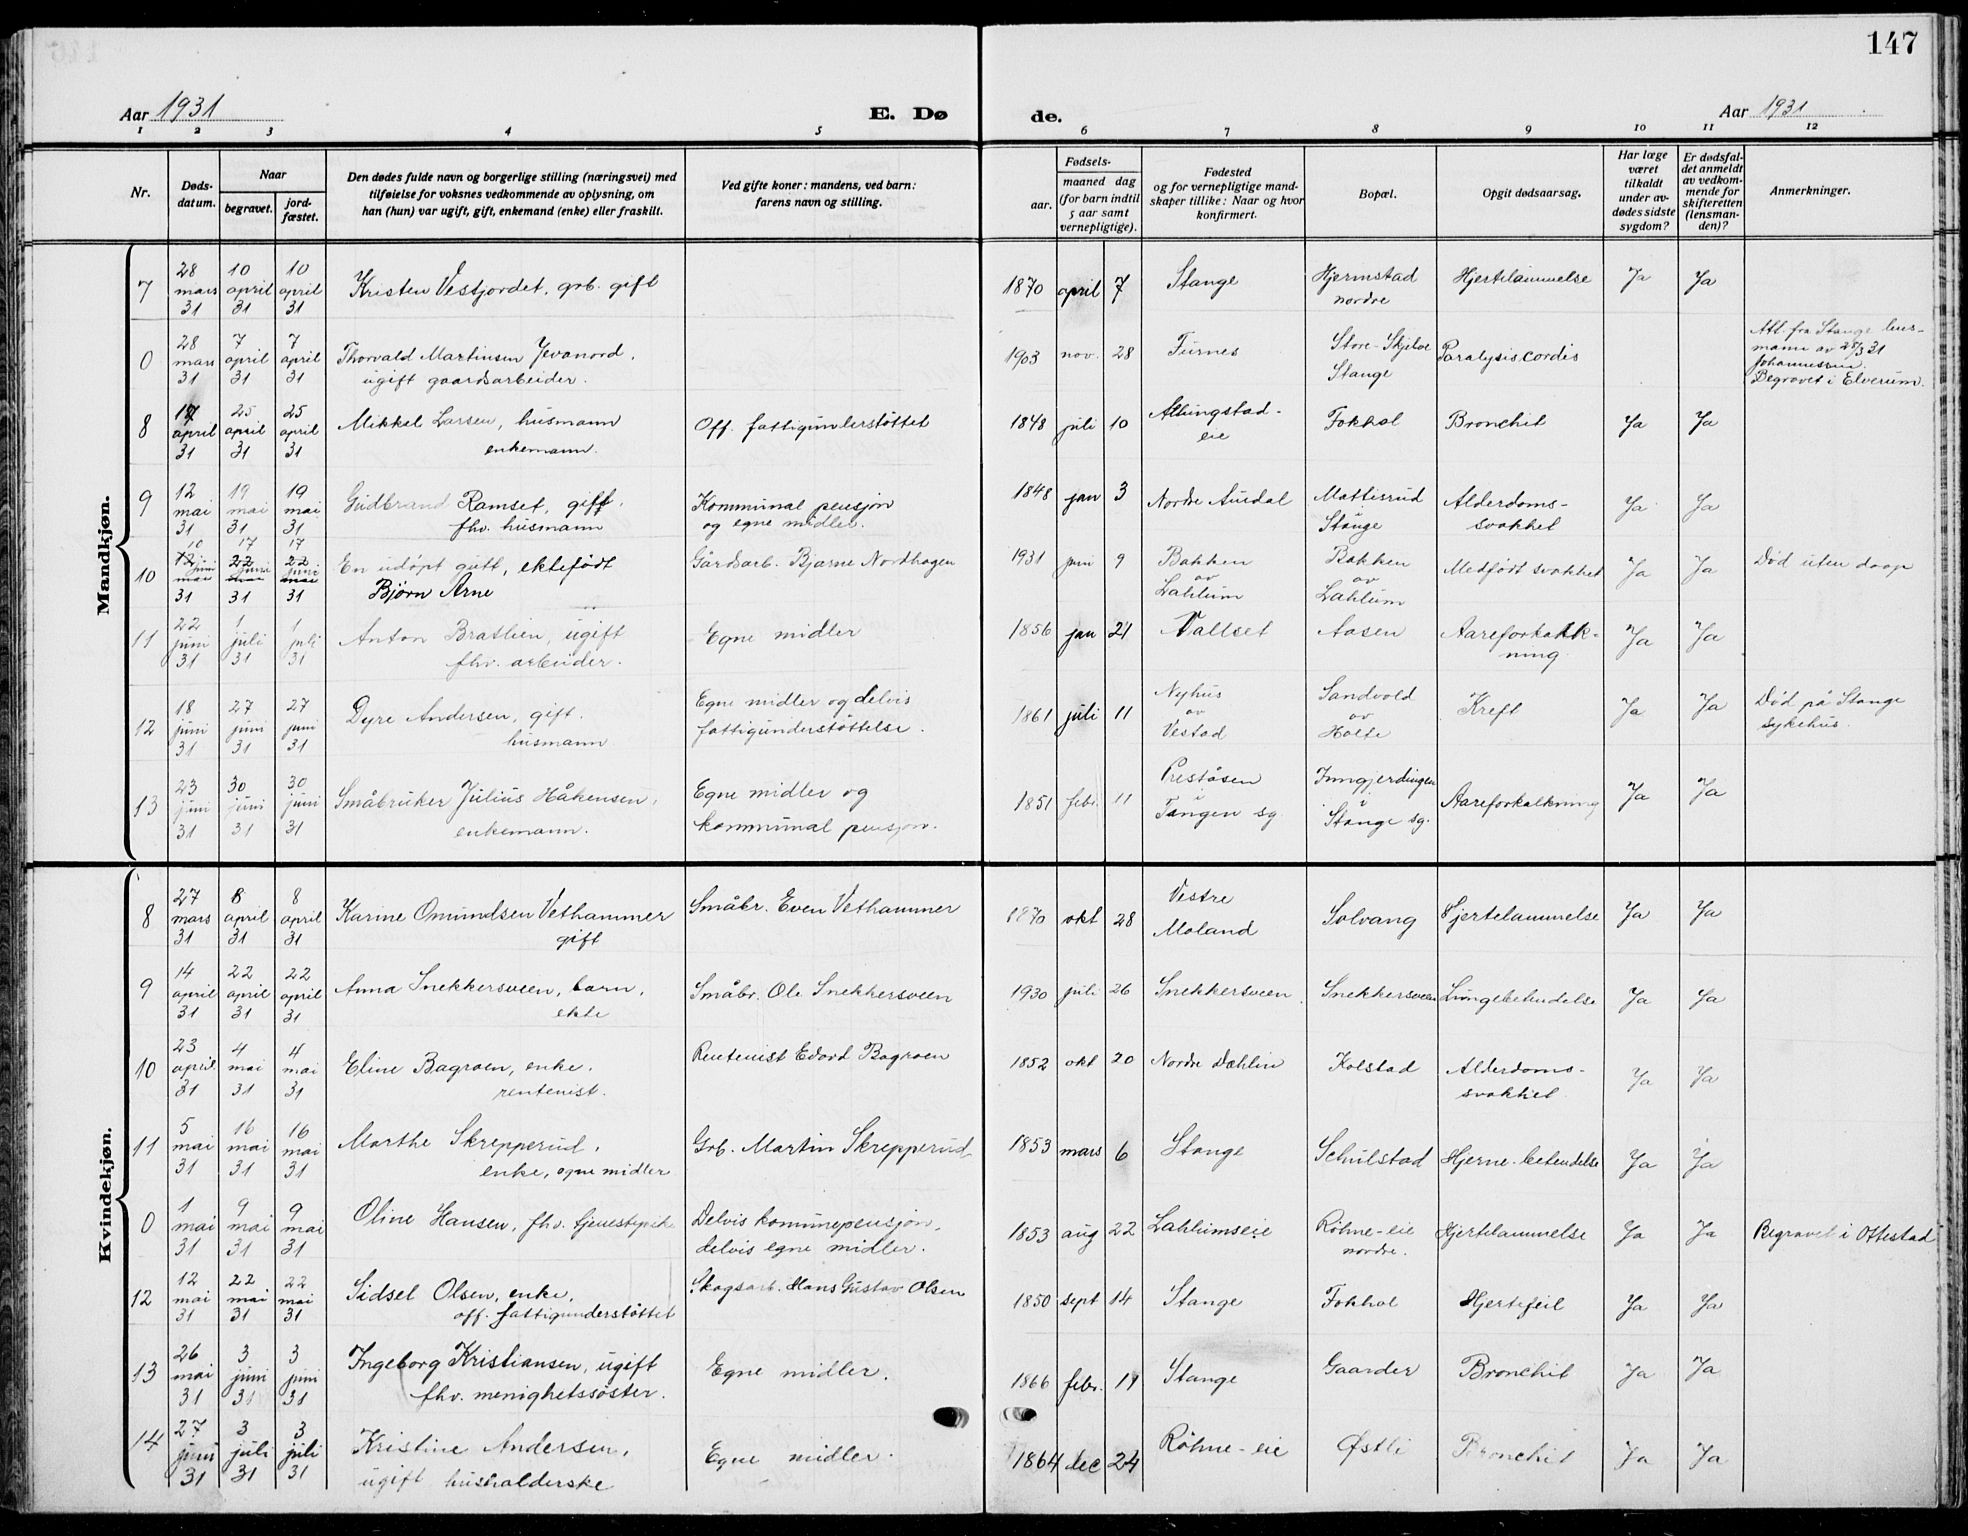 147
Aar 1931
E. Dø
de.
Aar 1931
1 2 3 4 5 6 7 8 9 10 11 12
Nr.
Døds-
datum.
Naar
begravet.
jord-
fæstet.
Den dødes fulde navn og borgerlige stilling (næringsvei) med
tilføielse for voksnes vedkommende av oplysning, om
han (hun) var ugift, gift, enkemand (enke) eller fraskilt.
Ved gifte koner: mandens, ved barn:
farens navn og stilling.
Fødsels-
aar.
maaned dag
(for barn indtil
5 aar samt
vernepligtige).
Fødested
og for vernepligtige mand-
skaper tillike: Naar og hvor
konfirmert.
Bopæl.
Opgit dødsaarsag.
Har læge
været
tilkaldt
under av-
dødes sidste
sygdom?
Er dødsfal-
det anmeldt
av vedkom-
mende for
skifteretten
(lensman-
den)?
Anmerkninger.
Mandkjøn.
7 28 mars 31 10 april 31 10 april 31 Kristen Vestjordet, grb. gift 1870 april 7 Stange Hjermstad nordre Hjertelammelse Ja Ja
0 28 mars 31 7 april 31 7 april 31 Thorvald Martinsen Jevanord, ugift gaardsarbeider. 1903 nov. 28 Furnes Store-Skjelve Stange Paralysis cordis Att. fra Stange lens-
mann av 28/3 31
Johannessen.
Begravet i Elverum.
8 17 april 31 25 april 31 25 april 31 Mikkel Larsen, husmann enkemann. Off. fattigunderstøttet 1848 juli 10 Alhungstad-eie Fokhol Bronchit Ja Ja
9 12 mai 31 19 mai 31 19 mai 31 Gudbrand Ramset, gift, fhv. husmann Kommunal pensjon og egne midler. 1848 jan 3 Nordre Aurdal Mattisrud i Stange Alderdoms-svakhet Ja Ja
10 10 12 juni mai 31 17 22 juni mai 31 17 22 juni mai 31 En udøpt gutt, ektefødt Bjørn Arne Gårdsarb. Bjarne Nordhagen 1931 juni 9 Bakken av Lahlum Bakken av Lahlum Medfødt svakhet Ja Ja Død uten daap
11 22 juni 31 1 juli 31 1 juli 31 Anton Bratlien, ugift fhv. arbeider. Egne midler 1856 jan 21 Vallset Aasen Aareforkalkning. Ja Ja
12 18 juni 31 27 juni 31 27 juni 31 Dyre Andersen, gift. husmann Egne midler og delvis fattigunderstøttelse. 1861 juli 11 Nyhus av Vestad Sandvold av Holte Kreft Ja Ja Død på Stange sykehus.
13 23 juni 31 30 juni 31 30 juni 31 Småbruker Julius Håkensen, enkemann. Egne midler og kommunal pensjon. 1851 febr. 11 Preståsen i Tangen sg. Inngjerdingen i Stange sg. Aareforkalkning Ja Ja
Kvindekjøn.
8 27 mars 31 8 april 31 8 april 31 Karine Omundsen Vethammer gift Småbr. Even Vethammer 1870 okt 28 Vestre Moland Solvang Hjertelammelse Ja Ja
9 14 april 31 22 april 31 22 april 31 Anna Snekkersveen, barn, ekte Småbr. Ole Snekkersveen 1930 juli 26 Snekkersveen Snekkersveen Lungebetendelse Ja Ja
10 23 april 31 4 mai 31 4 mai 31 Eline Bagroen, enke. rentenist. Rentenist Edvard Bagroen 1852 okt 20 Nordre Dæhlin Kolstad Alderdoms-svakhet. Ja Ja
11 5 mai 31 16 mai 31 16 mai 31 Marthe Skrepperud, enke, egne midler Grb. Martin Skrepperud 1853 mars 6 Stange Schulstad Hjerne-betendelse Ja Ja
0 1 mai 31 9 mai 31 9 mai 31 Oline Hansen, fhv. tjenestepik. Delvis komunepensjon, delvis egne midler. 1853 aug 22 Lahlumseie Röhne-eie nordre. Hjertelammelse Ja Ja Begravet i Ottestad
12 12 mai 31 22 mai 31 22 mai 31 Sidsel Olsen, enke, off. fattigunderstøttet Skogsarb. Hans Gustav Olsen 1850 sept 14 Stange Fokhol Hjertefeil Ja Ja
13 26 mai 31 3 juni 31 3 juni 31 Ingeborg Kristiansen, ugift fhv. menighetssöster. Egne midler. 1866 febr. 19 Stange Gaarder Bronchit Ja Ja
14 27 juni 31 3 juli 31 3 juli 31 Kristine Andersen, ugift husholderske Egne midler. 1864 dec 24 Röhne-eie Østli Bronchit Ja Ja